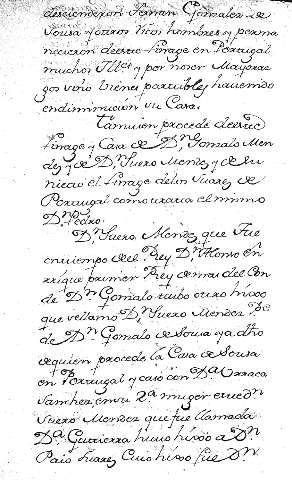 descienden Fernan Gonzalez de
Sousa y otros ricos hombres y perma
necieron deeste Linage en Portugal
muchos Ill.es y por no ser Mayoraz
gos sino bienes partibles haviendo
en diminucion su Casa.
Tamvien procede deeste
Linage y Casa de D.n Gonzalo Men
dez y de D.n Suero Mendez y de su
nieto el Linage delos Suarez de
Portugal como trata el mismo
D.n Pedro.
D.n Suero Mendez que fue
en tiempo de el Rey D.n Alonso En
rriquez primer Rey de mas del Con
de D.n Gonzalo tubo otro hixo
que se llamo D.n Suero Mendez P.e
de D.n Gonzalo de Sousa ya d.ho
de quien procede la Casa de Sousa
en Portugal y casó con D.a Urraca
Sanchez en su 2.a muger el d.n
Suero Mendez que fue llamada
D.a Gutierra huvo hixo a D.n
Paio Suarez Cuio hixo fue D.n